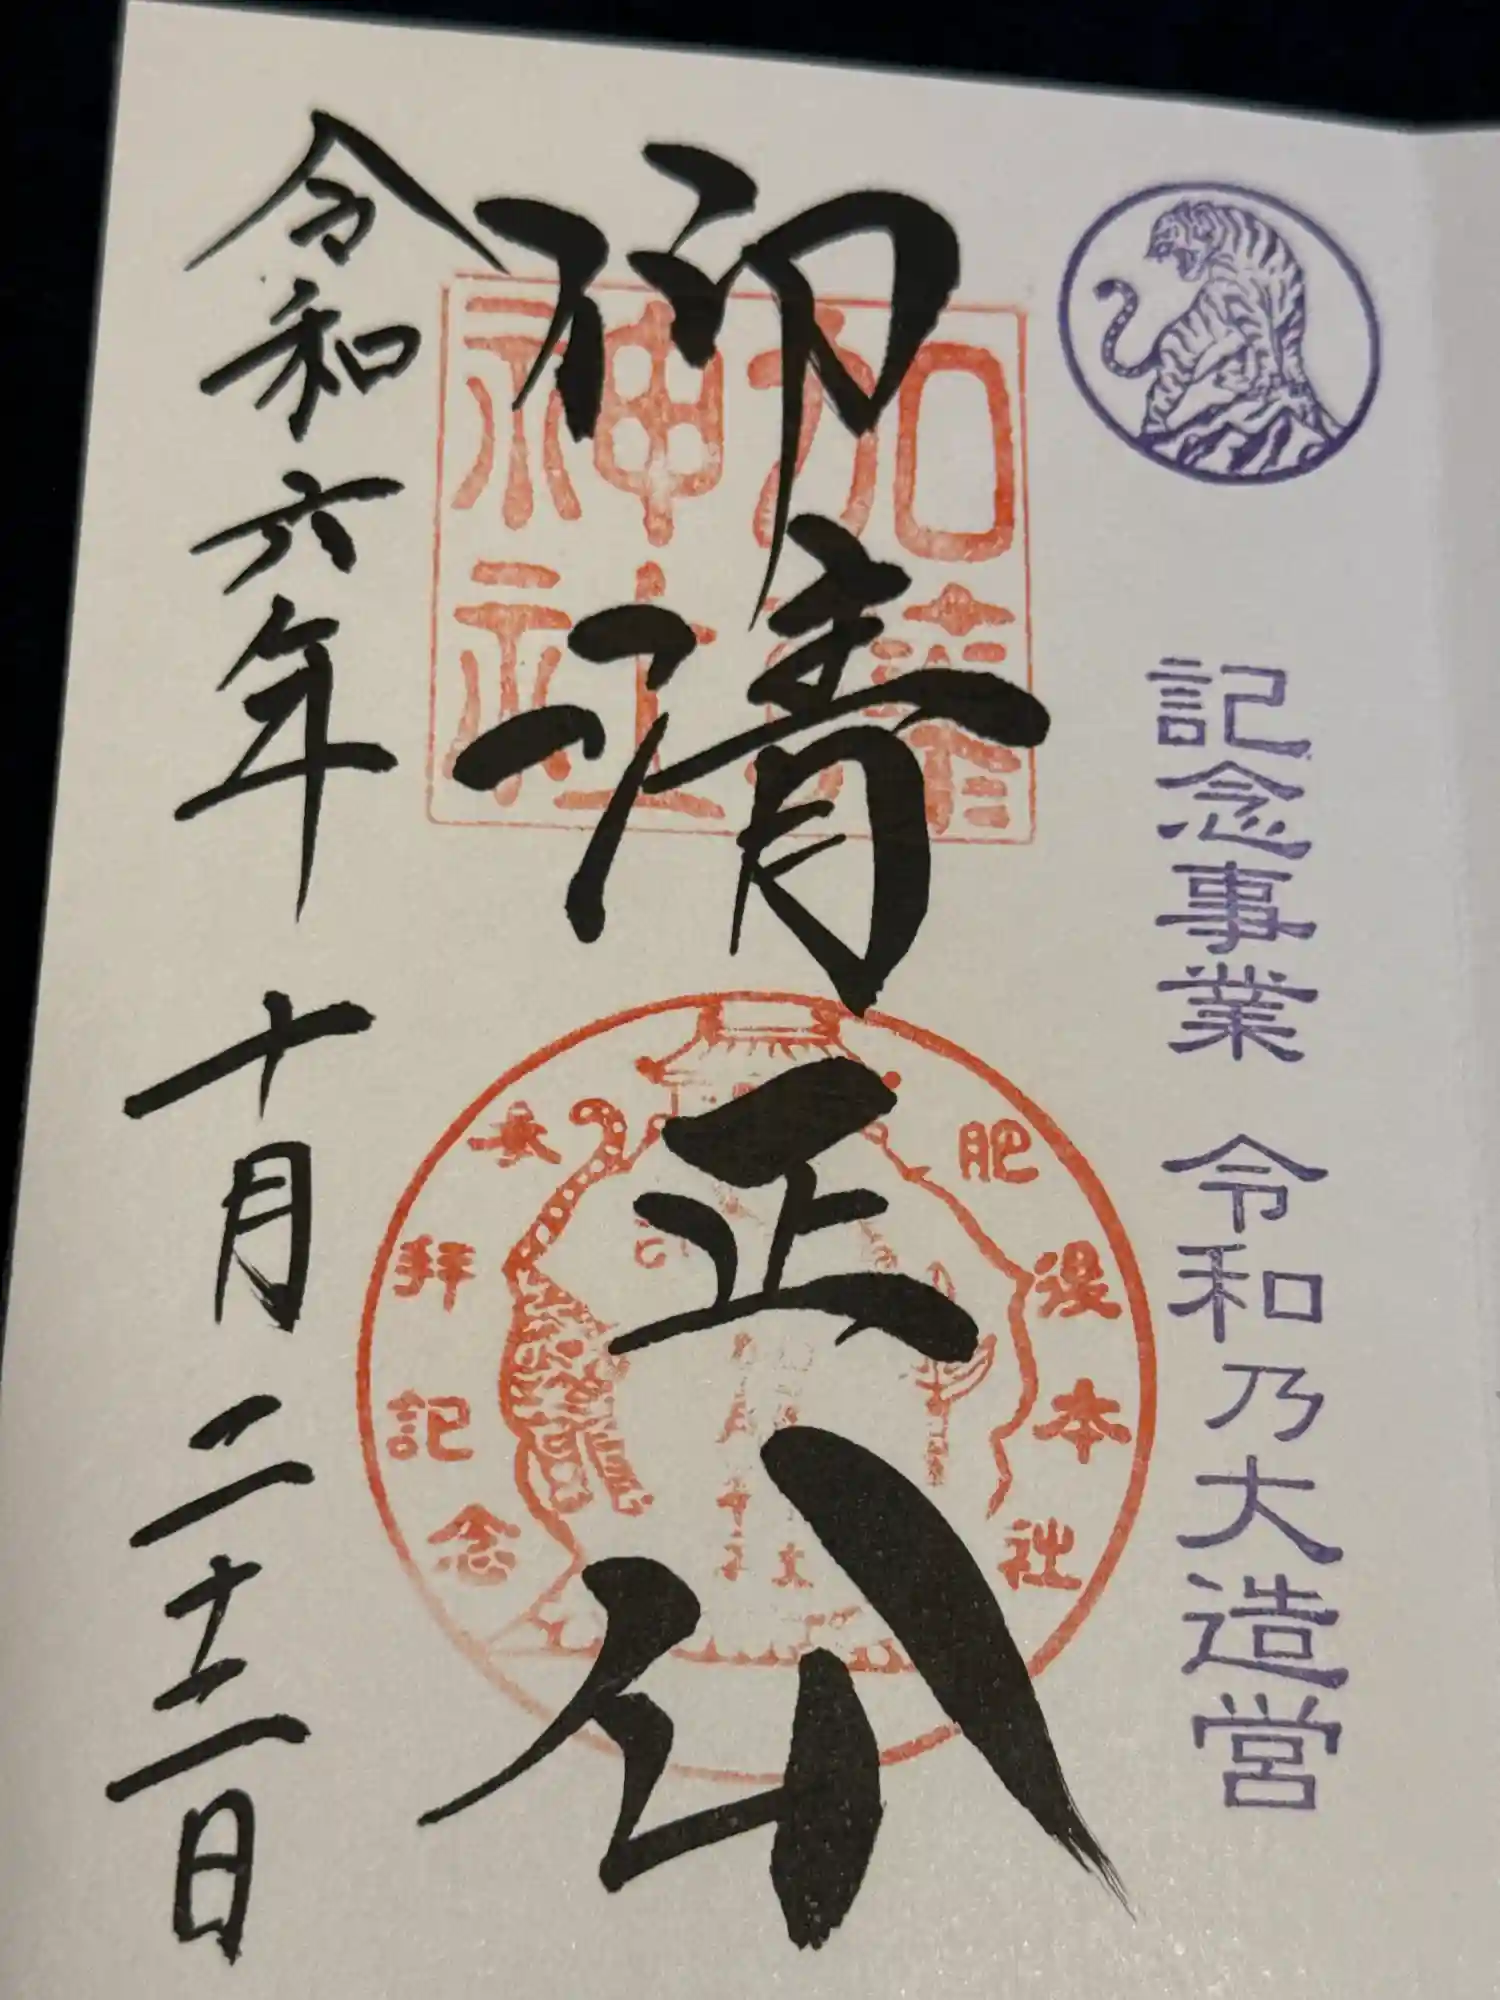 記念事業 令和乃大造営
仰清正公
加藤神社
肥後本社
参拝記念
令和六年十月二十二日